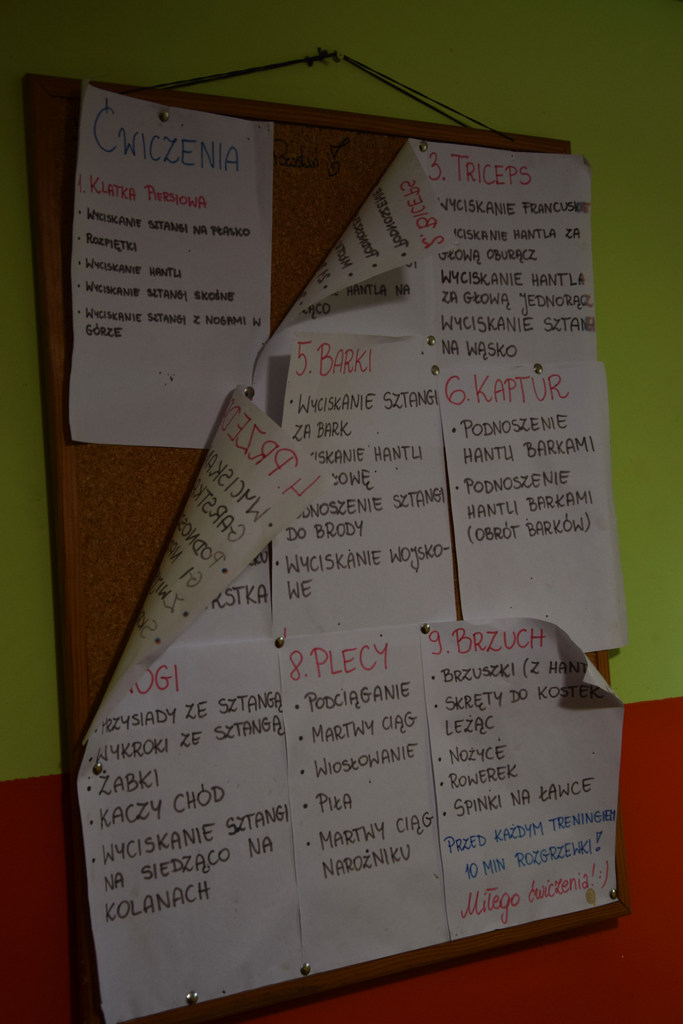 ĆWICZENIA
1. KLATKA PIERSIOWA
• WYCISKANIE SZTANGI NA PŁASKO
• ROZPIĘTKI
• WYCISKANIE HANTLI
• WYCISKANIE SZTANGI SKOŚNE
• WYCISKANIE SZTANGI Z NOGAMI W
GÓRZE
2. BICEPS
HANTLA NA
3. TRICEPS
WYCISKANIE FRANCUSKI
WYCISKANIE HANTLA ZA
GŁOWĄ OBURĄCZ
WYCISKANIE HANTLA
ZA GŁOWĄ JEDNORĄCZ
WYCISKANIE SZTANGI
NA WĄSKO
4. PRZED
WYCISKA
GARSTK
• PODNOS
5. BARKI
• WYCISKANIE SZTANGI
ZA BARK
ISKANIE HANTLI
OWĘ
DNOSZENIE SZTANGI
DO BRODY
• WYCISKANIE WOJSKO-
WE
6. KAPTUR
• PODNOSZENIE
HANTLI BARKAMI
• PODNOSZENIE
HANTLI BARKAMI
(OBRÓT BARKÓW)
RSTKA
OGI
PRZYSIADY ZE SZTANGĄ
• WYKROKI ZE SZTANGĄ
• ŻABKI
• KACZY CHÓD
• WYCISKANIE SZTANGI
NA SIEDZĄCO NA
KOLANACH
8. PLECY
• PODCIĄGANIE
• MARTWY CIĄG
• WIOSŁOWANIE
• PIŁA
• MARTWY CIĄG
NAROŻNIKU
9. BRZUCH
• BRZUSZKI (Z HANT
• SKRĘTY DO KOSTEK
LEŻĄC
• NOŻYCE
• ROWEREK
• SPINKI NA ŁAWCE
PRZED KAŻDYM TRENINGIEM
10 MIN ROZGRZEWKI!
Miłego ćwiczenia! :)